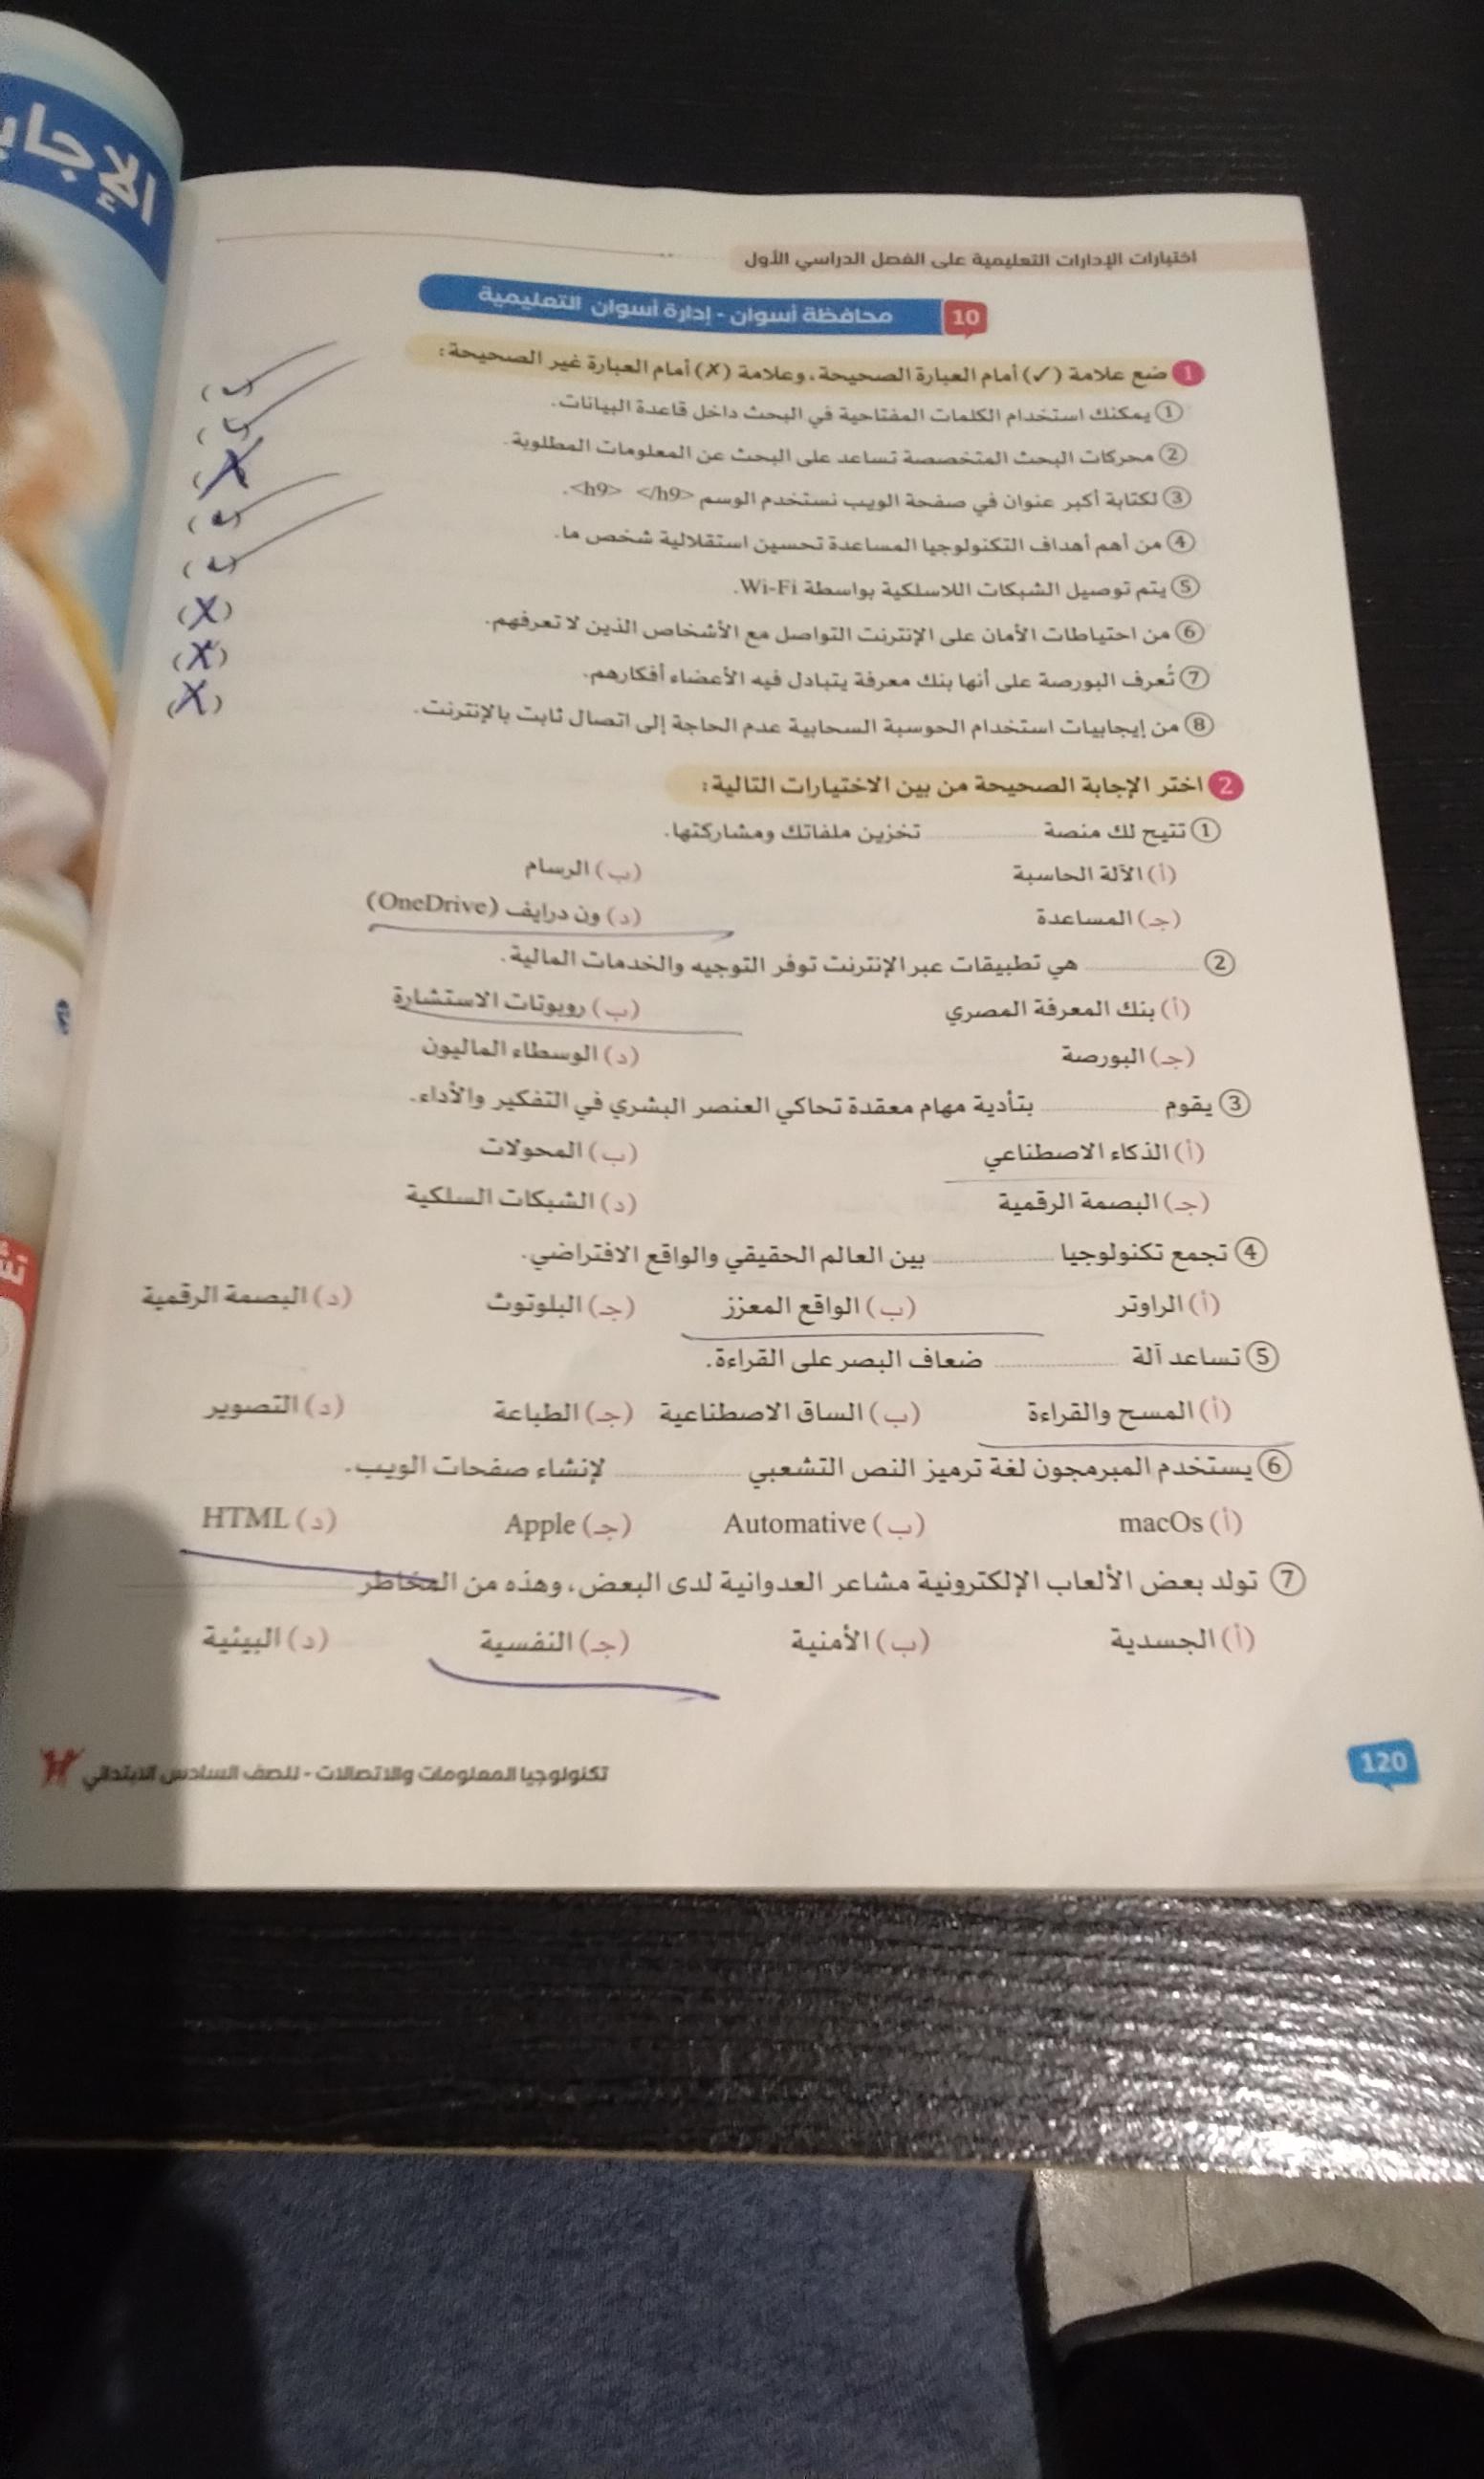 الإجاب
اختبارات الإدارات التعليمية على الفصل الدراسي الأول
10 محافظة أسوان - إدارة أسوان التعليمية
1 ضع علامة (✓) أمام العبارة الصحيحة، وعلامة (✗) أمام العبارة غير الصحيحة:
① يمكنك استخدام الكلمات المفتاحية في البحث داخل قاعدة البيانات. (✓)
② محركات البحث المتخصصة تساعد على البحث عن المعلومات المطلوبة. (✓)
③ لكتابة أكبر عنوان في صفحة الويب نستخدم الوسم <h9> </h9>. (X)
④ من أهم أهداف التكنولوجيا المساعدة تحسين استقلالية شخص ما. (✓)
⑤ يتم توصيل الشبكات اللاسلكية بواسطة Wi-Fi. (✓)
⑥ من احتياطات الأمان على الإنترنت التواصل مع الأشخاص الذين لا تعرفهم. (X)
⑦ تُعرف البورصة على أنها بنك معرفة يتبادل فيه الأعضاء أفكارهم. (X)
⑧ من إيجابيات استخدام الحوسبة السحابية عدم الحاجة إلى اتصال ثابت بالإنترنت. (X)
2 اختر الإجابة الصحيحة من بين الاختيارات التالية:
① تتيح لك منصة .......... تخزين ملفاتك ومشاركتها.
(أ) الآلة الحاسبة (ب) الرسام
(جـ) المساعدة (د) ون درايف (OneDrive)
② .......... هي تطبيقات عبر الإنترنت توفر التوجيه والخدمات المالية.
(أ) بنك المعرفة المصري (ب) روبوتات الاستشارة
(جـ) البورصة (د) الوسطاء الماليون
③ يقوم .......... بتأدية مهام معقدة تحاكي العنصر البشري في التفكير والأداء.
(أ) الذكاء الاصطناعي (ب) المحولات
(جـ) البصمة الرقمية (د) الشبكات السلكية
④ تجمع تكنولوجيا .......... بين العالم الحقيقي والواقع الافتراضي.
(أ) الراوتر (ب) الواقع المعزز (جـ) البلوتوث (د) البصمة الرقمية
⑤ تساعد آلة .......... ضعاف البصر على القراءة.
(أ) المسح والقراءة (ب) الساق الاصطناعية (جـ) الطباعة (د) التصوير
⑥ يستخدم المبرمجون لغة ترميز النص التشعبي .......... لإنشاء صفحات الويب.
(أ) macOs (ب) Automative (جـ) Apple (د) HTML
⑦ تولد بعض الألعاب الإلكترونية مشاعر العدوانية لدى البعض، وهذه من المخاطر ..........
(أ) الجسدية (ب) الأمنية (جـ) النفسية (د) البيئية
120
تكنولوجيا المعلومات والاتصالات - للصف السادس الابتدائي